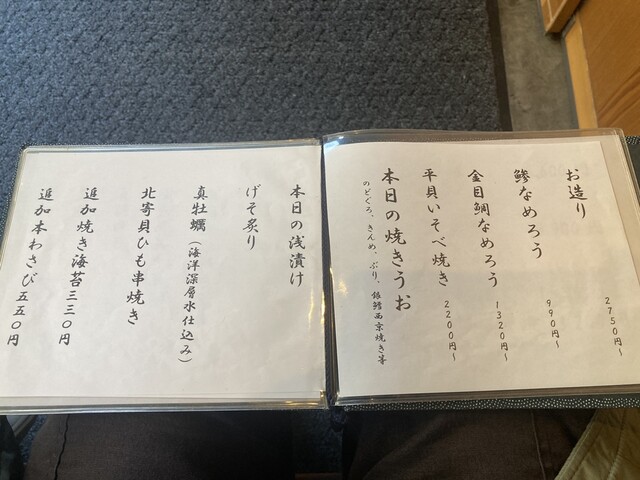 お造り 2750円~
鯵なめろう 990円~
金目鯛なめろう 1320円~
平貝いそべ焼き 2200円~
本日の焼きうお
のどぐろ、きんめ、ぶり、銀鱈西京焼き等
本日の浅漬け
げそ炙り
真牡蠣(海洋深層水仕込み)
北寄貝ひも串焼き
追加焼き海苔三三〇円
追加本わさび五五〇円